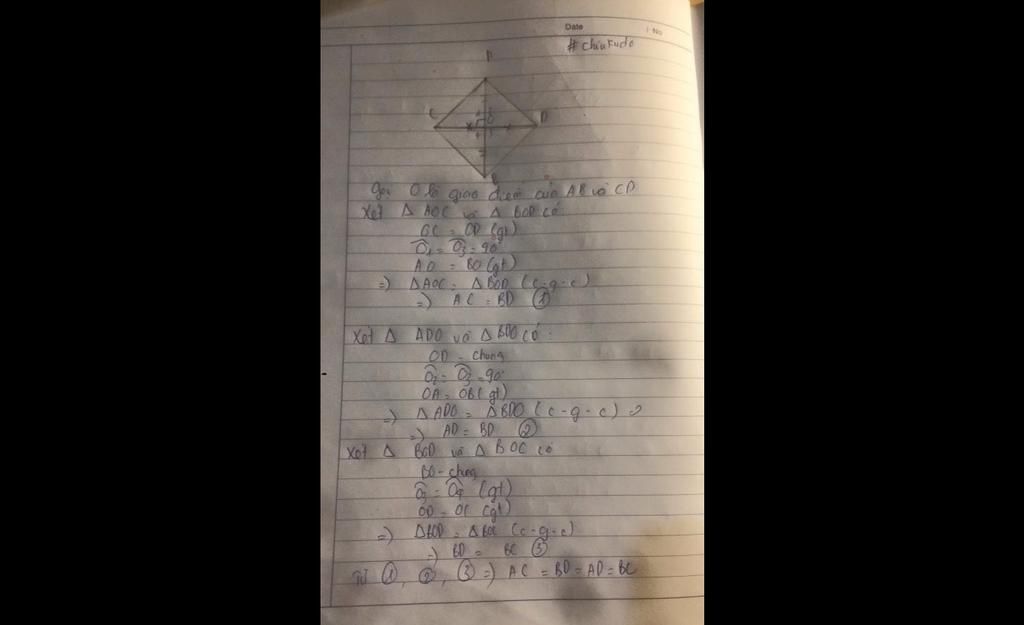 Date
No
#chiukudo
C
D
B
Gọi O là giao điểm của AB và CD
Xét Δ AOC và Δ BOD có:
OC = OD (gt)
Ô1 = Ô3 = 90°
AO = BO (gt)
=) ΔAOC = ΔBOD (c-g-c)
=) AC = BD (1)
Xét Δ ADO và Δ BDO có:
OD - chung
Ô2 = Ô3 = 90°
OA = OB (gt)
=) Δ ADO = ΔBDO (c-g-c)
=) AD = BD (2)
Xét Δ BOD và Δ BOC có
BO - chung
Ô3 = Ô4 (gt)
OD = OC (gt)
=) ΔBOD = ΔBOC (c-g-c)
=) BD = BC (3)
Từ (1), (2), (3) =) AC = BD = AD = BC